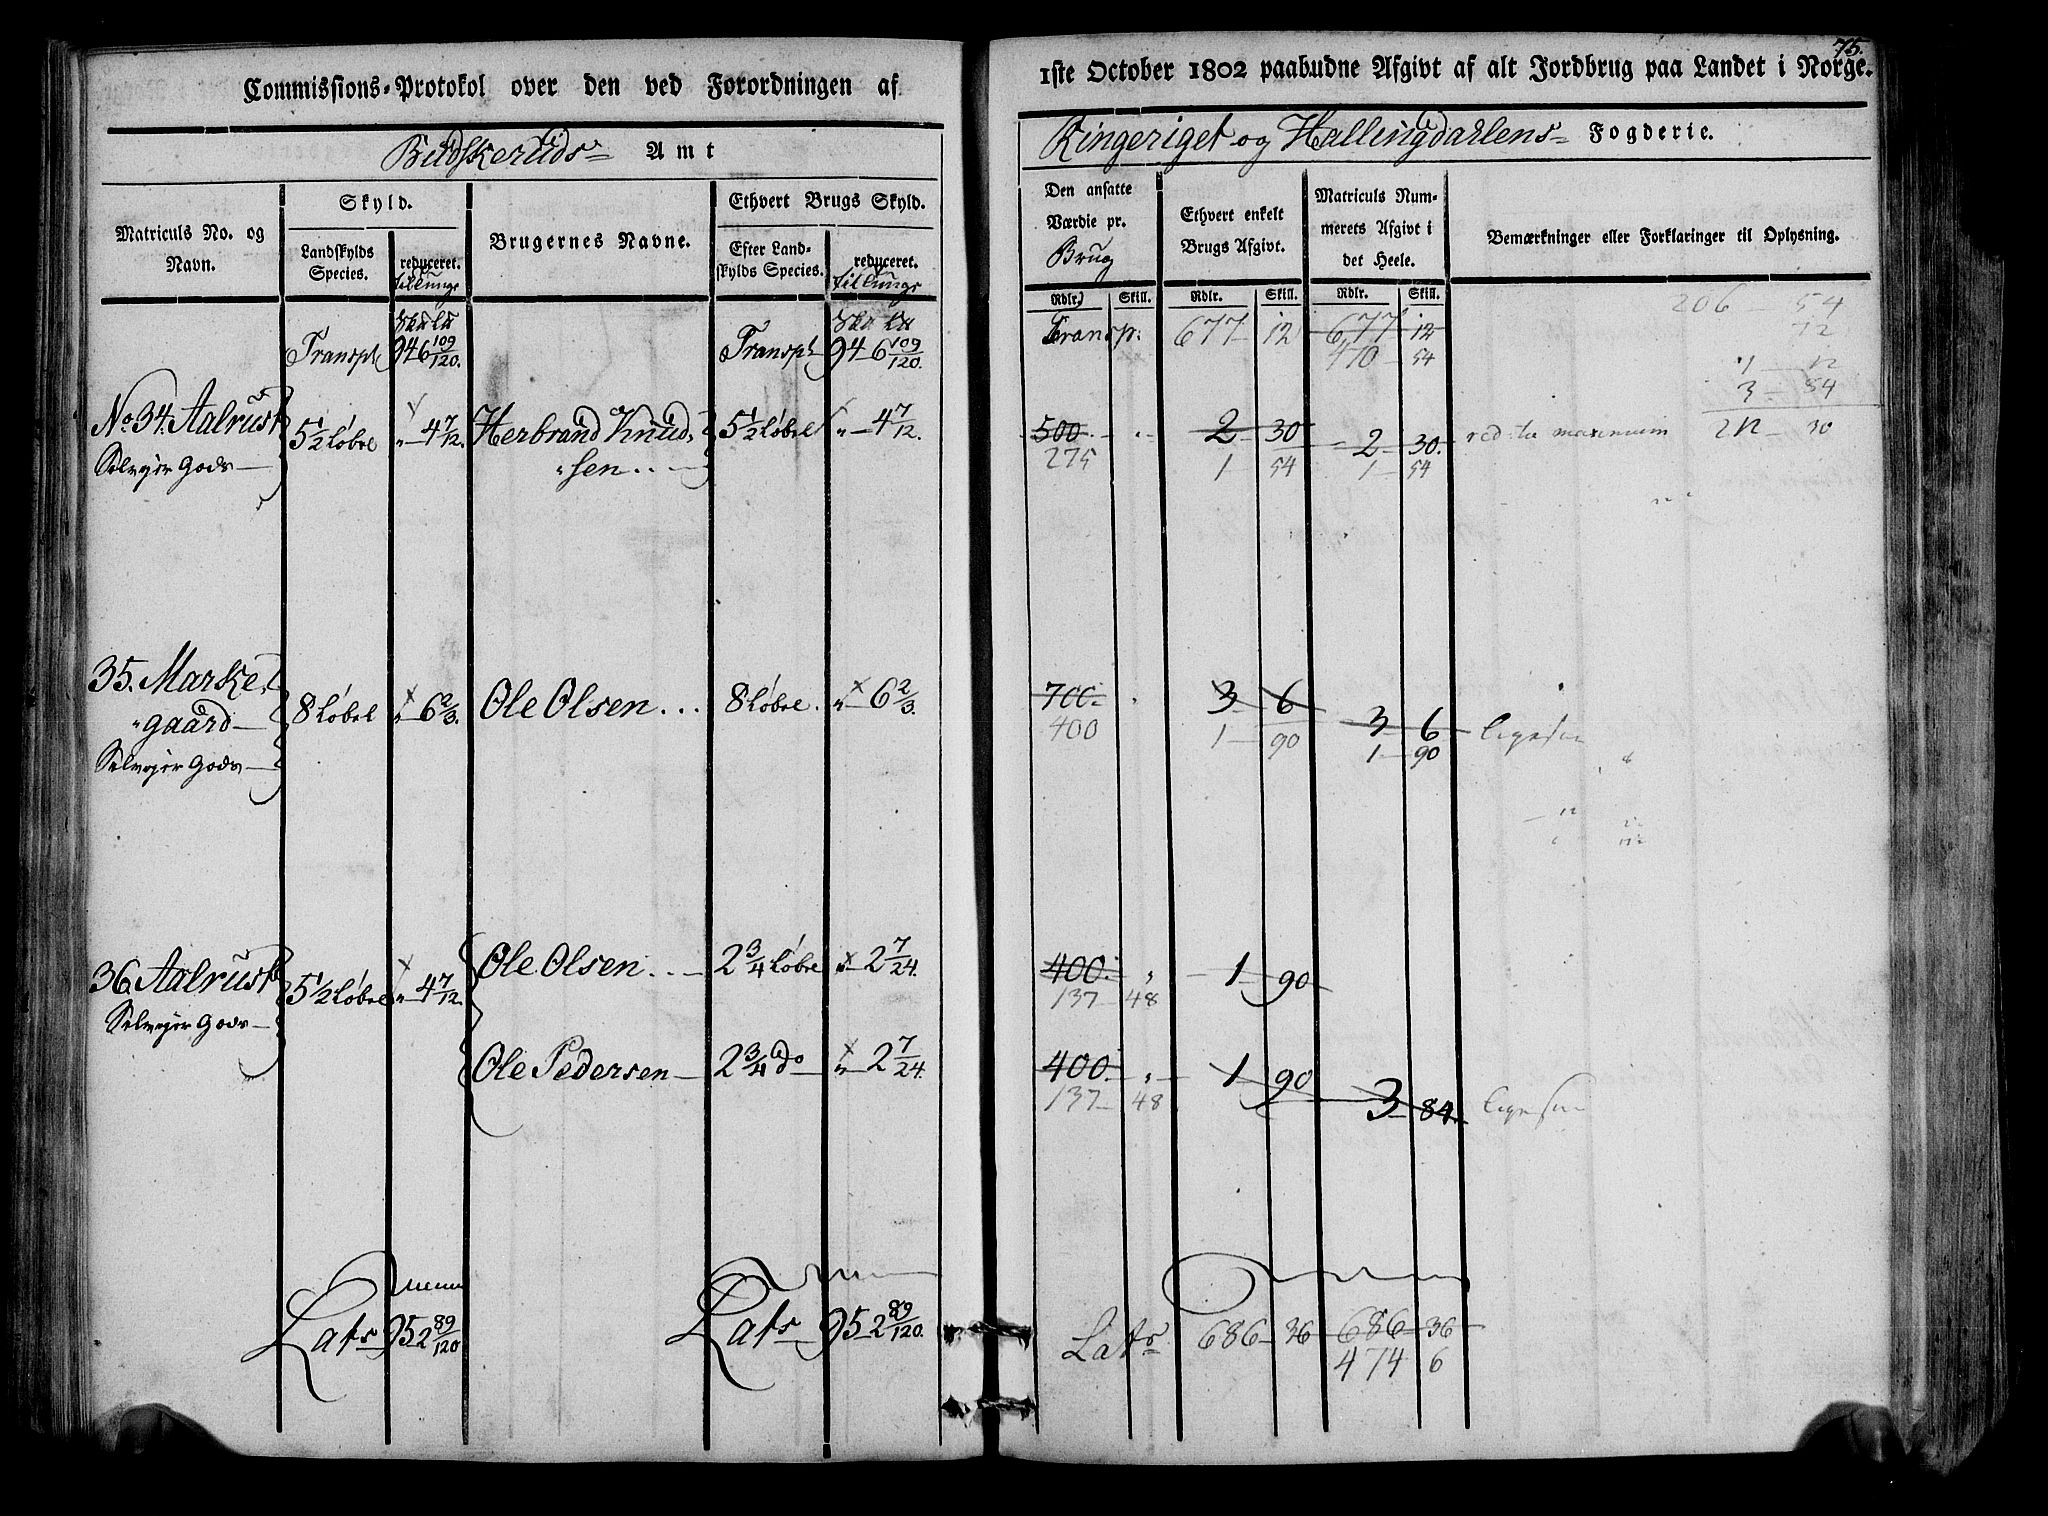 Commissions-Protokol over den ved Forordningen af
Budskeruds Amt
Matriculs No. og Navn.
Skyld.
Landskylds Species.
reduceret.
Brugernes Navne.
Ethvert Brugs Skyld.
Efter Landskylds Species.
reduceret.
Transpt 946 109/120.
Transpt 94 6 109/120.
No 34. Aalrust 5 1/2 Løbel " 4 7/12. Herbrand Knud, 5 1/2 Løbel " 4 7/12.
Selvejer Gods "sen
35. Marke, 8 Løbel " 6 2/3. Ole Olsen... 8 Løbel. " 6 2/3.
"gaard
Selvejer Gods
36. Aalrust 5 1/2 Løbel " 4 7/12. Ole Olsen.. 2 3/4 Løbel " 2 7/24.
Selvejer Gods
Ole Pedersen 2 3/4 do " 2 7/24.
Lats 952 89/120
Lats 952 89/120.
75.
1ste October 1802 paabudne Afgivt af alt Jordbrug paa Landet i Norge.
Ringeriget og Hallingdahlens Fogderie.
Den ansatte Værdie pr. Brug
Ethvert enkelt Brugs Afgivt.
Matriculs Nummerets Afgivt i det Heele.
Bemærkninger eller Forklaringer til Oplysning.
Rdlr. Skill. Rdlr. Skill. Rdlr. Skill.
206 54
12
Transp: 677 12 677 12
470 54
1 12
3 54
500 2 30 2 30. red. til maximum 212 30
275 1 54 1 54
700 3 6 3 6 ligesaa
400 1 90 1 90
400 " 1 90
137 48
400 " 1 90 3 84. ligesaa
137 48
Lats 686 36 686 36
474 6